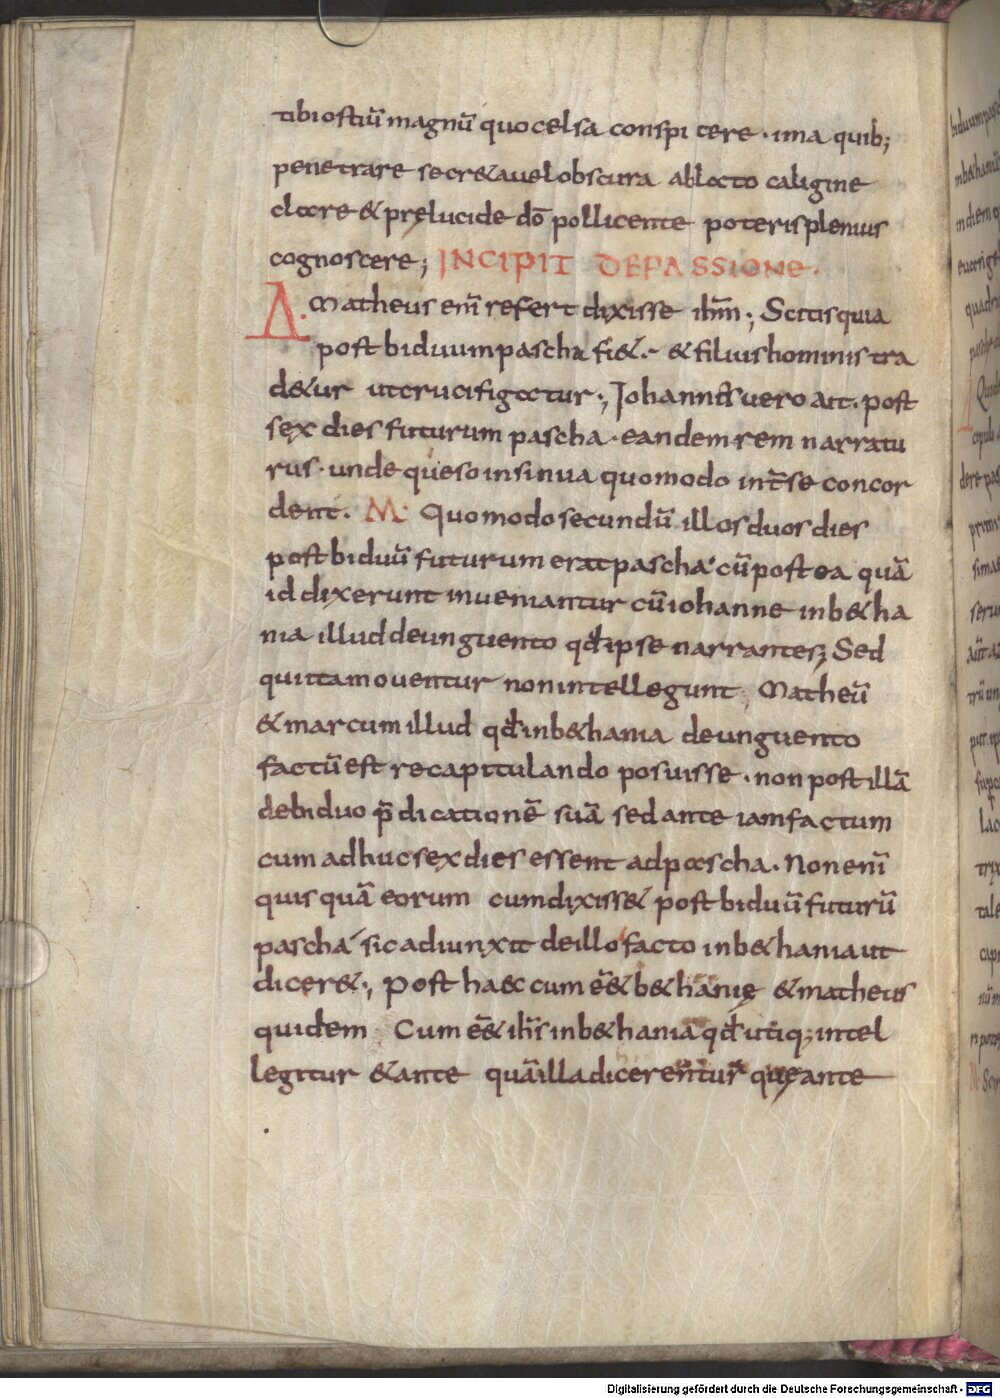 tibi ostiū magnū quo celsa conspicere · ima quib;
penetrare secr&a uel obscura ablata caligine
clare & prelucide dō pollicente poteris plenius
cognoscere; INCIPIT DE PASSIONE.
Δ· Matheus eni̅ refert dixisse ih̄m; Scitis quia
post biduum pascha fi&· & filius hominis tra
d&ur ut crucifigatur; Iohannes uero ait. post
sex dies futurum pascha · eandem rem narratu
rus · unde queso insinua quomodo int̄ se concor
dent. M· Quomodo secundū illos duos dies
post biduū futurum erat pascha cū postea quā
id dixerunt inueniantur cū iohanne in b&ha
nia illud de unguento qđ ipse narrantes; Sed
qui ita mouentur non intellegunt; Matheū
& marcum illud qđ in b&hania de unguento
factū est recapitulando posuisse · non post illā
de biduo p̄dicationē suā sed ante iam factum
cum adhuc sex dies essent ad pascha. Non eni̅
quisquā eorum cum dixiss& post biduū futurū
pascha sic adiunxit de illo facto in b&hania ut
dicer&; Post haec cum ēē& b&hanię & matheus
quidem Cum ēē& ih̄s in b&hania qđ utiq; intel
legitur & ante quā illa dicerentur que ante